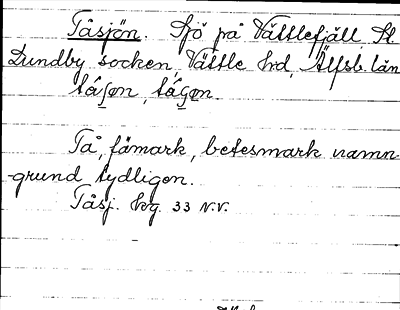 Tåsjön. Sjö på Vättlefjäll St.
Lundby socken Vättle hrd, Älfsb. län
Tå, fåmark, betesmark namn-
grund tydligen.
Tåsj. kg. 33 N.V.